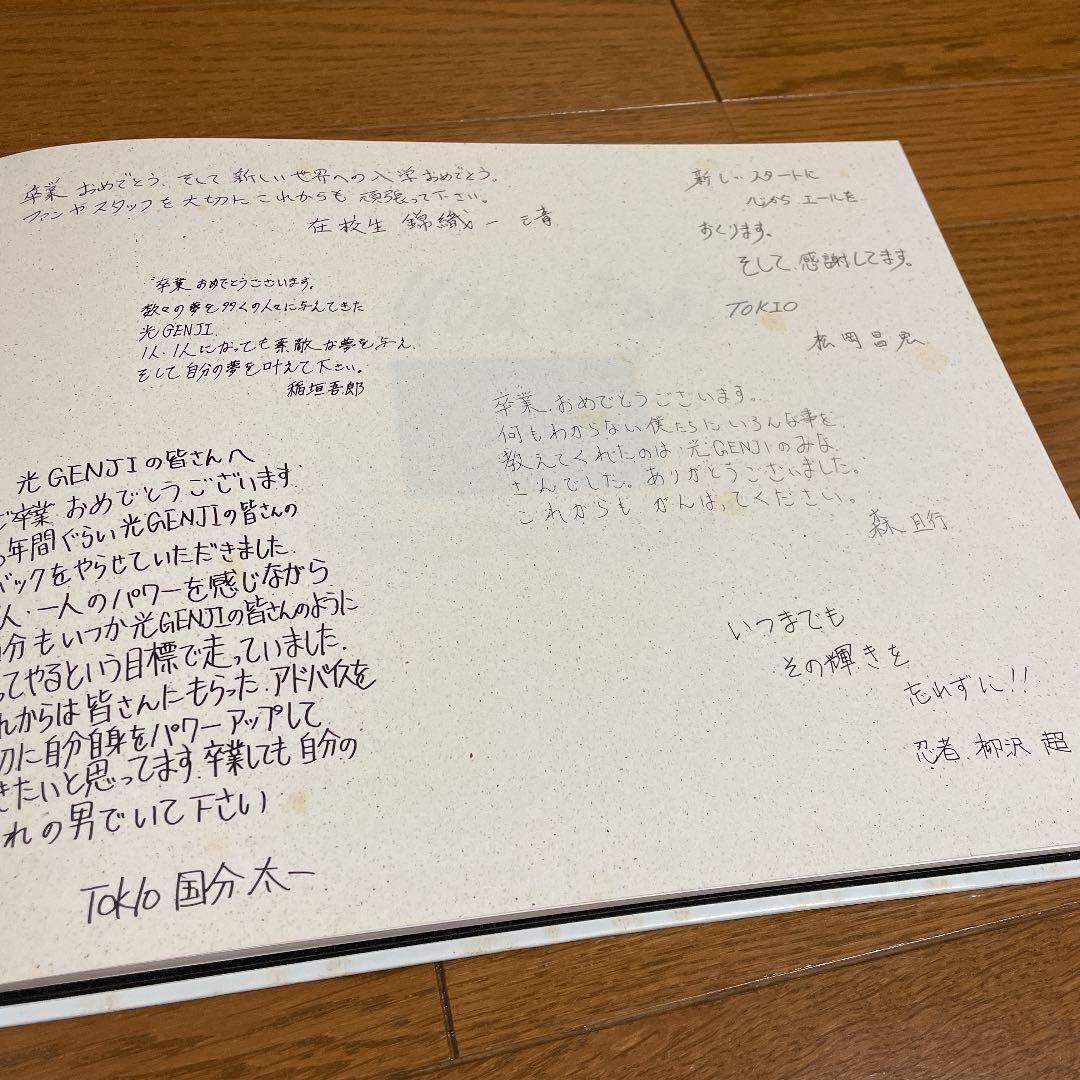 卒業 おめでとう、そして 新しい世界への入学おめでとう。
ファンやスタッフを大切に これからも 頑張って下さい。
在校生 錦織一清
卒業 おめでとうございます。
数々の夢を多くの人々に与えてきた
光GENJI
1人・1人になっても素敵な夢を与え
そして自分の夢を叶えて下さい。
稲垣吾郎
光GENJIの皆さんへ
ご卒業 おめでとうございます
年間ぐらい光GENJIの皆さんの
バックをやらせていただきました.
人・一人のパワーを感じながら
分もいつか光GENJIの皆さんのように
ってやるという目標で走っていました.
れからは皆さんにもらった.アドバイスを
切に自分自身をパワーアップして
きたいと思ってます.卒業しても自分の
れの男でいて下さい
TOKIO 国分太一
新しいスタートに
心から エールを
おくります。
そして、感謝してます。
TOKIO
松岡昌宏
卒業、おめでとうございます。
何もわからない僕たちにいろんな事を
教えてくれたのは、光GENJIのみな
さんでした。ありがとうございました。
これからも がんばってください。
森 且行
いつまでも
その輝きを
忘れずに!!
忍者 柳沢 超